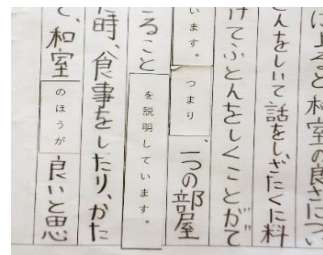 によると和室の良さについ
んをしいて話をしざたくに料
けてふとんをしくことがで
います。つまり、一つの部屋
ることを説明しています。
た時、食事をしたり、かた
て、和室のほうが良いと思